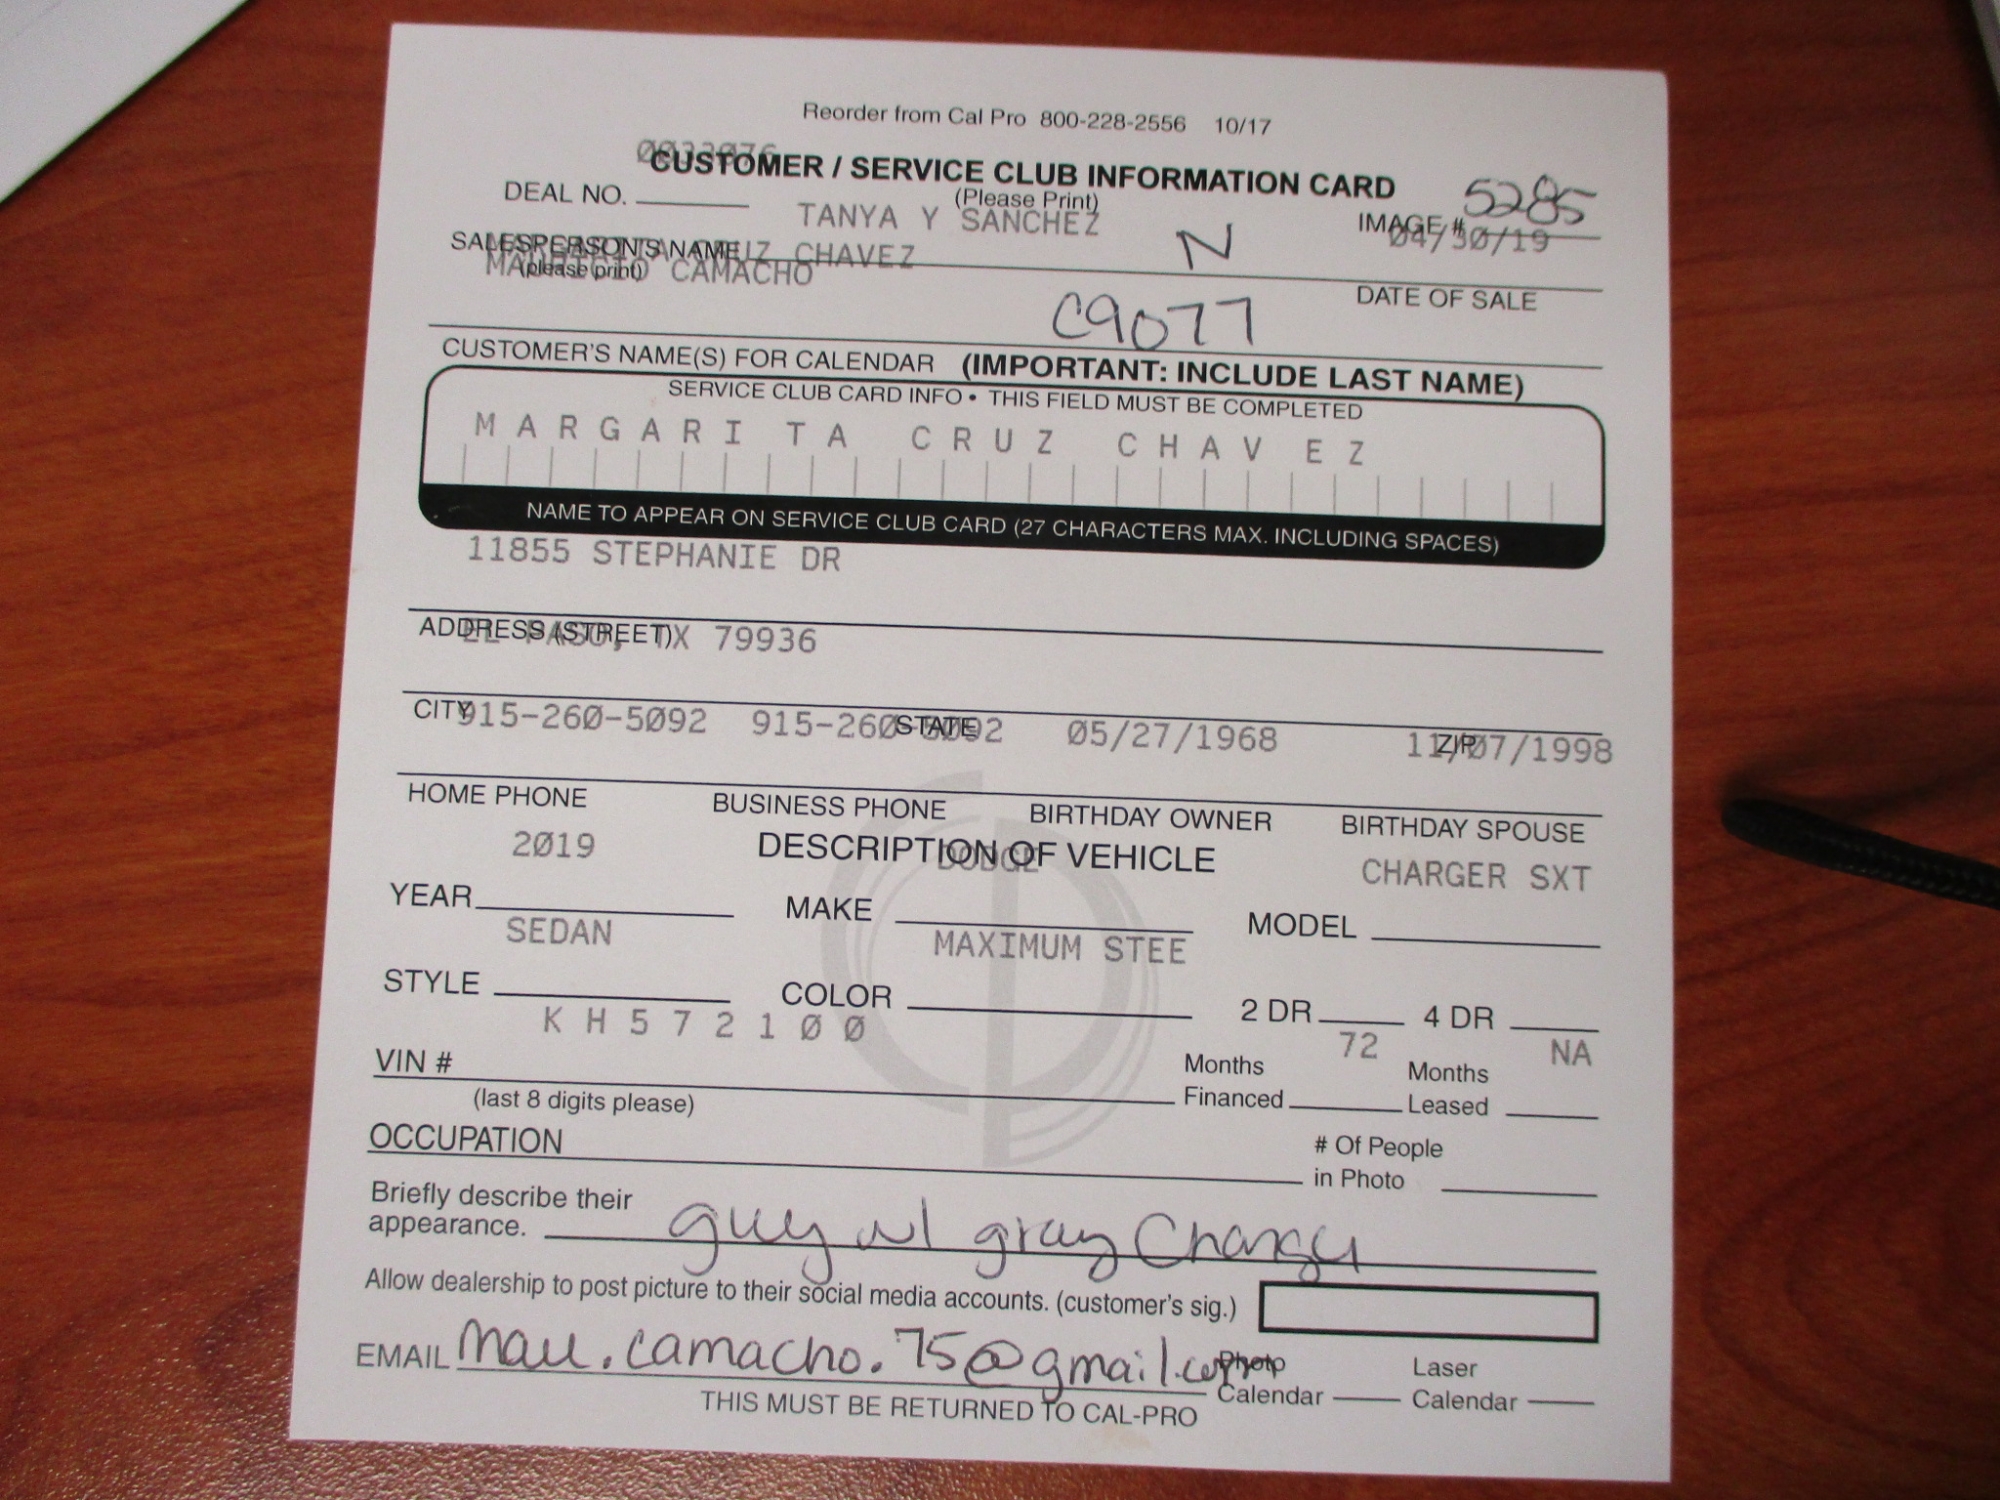 Reorder from Cal Pro 800-228-2556 10/17
CUSTOMER / SERVICE CLUB INFORMATION CARD
DEAL NO. (Please Print) 5285
TANYA Y SANCHEZ IMAGE #
04/30/19
SALESPERSON'S NAME CRUZ CHAVEZ N
(please print) MAURICIO CAMACHO
DATE OF SALE
C9077
CUSTOMER'S NAME(S) FOR CALENDAR (IMPORTANT: INCLUDE LAST NAME)
SERVICE CLUB CARD INFO • THIS FIELD MUST BE COMPLETED
MARGARITA CRUZ CHAVEZ
NAME TO APPEAR ON SERVICE CLUB CARD (27 CHARACTERS MAX. INCLUDING SPACES)
11855 STEPHANIE DR
ADDRESS (STREET) EL PASO, TX 79936
CITY 915-260-5092 915-260-5092 STATE 05/27/1968 11/07/1998 ZIP
HOME PHONE BUSINESS PHONE BIRTHDAY OWNER BIRTHDAY SPOUSE
2019 DESCRIPTION OF VEHICLE DODGE CHARGER SXT
YEAR MAKE MODEL
SEDAN MAXIMUM STEE
STYLE COLOR 2 DR 4 DR
KH572100 72 NA
VIN # Months Financed Months Leased
(last 8 digits please)
OCCUPATION # Of People in Photo
Briefly describe their
appearance. guy w/ gray Charger
Allow dealership to post picture to their social media accounts. (customer's sig.)
EMAIL mau.camacho.75@gmail.com Photo Calendar Laser Calendar
THIS MUST BE RETURNED TO CAL-PRO